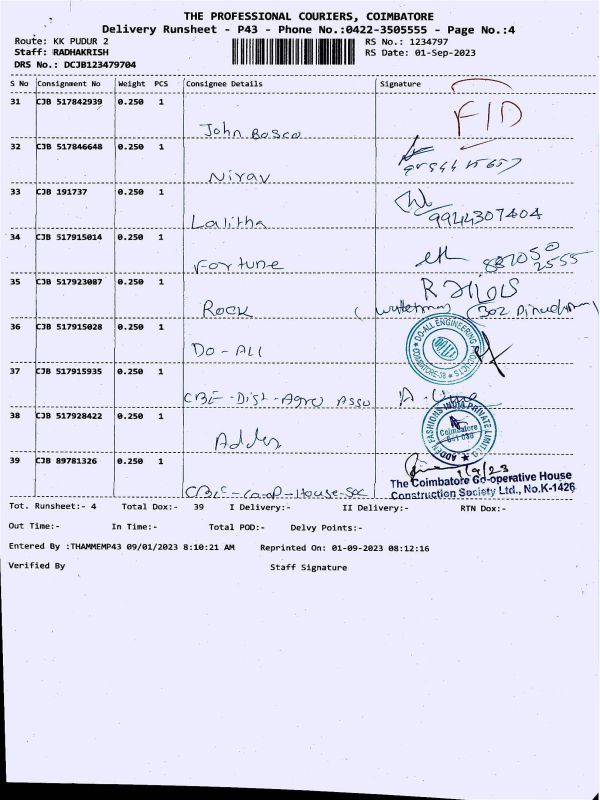 THE PROFESSIONAL COURIERS, COIMBATORE
Delivery Runsheet - P43 - Phone No.:0422-3505555 - Page No.:4
Route: KK PUDUR 2 RS No.: 1234797
Staff: RADHAKRISH RS Date: 01-Sep-2023
DRS No.: DCJB123479704
S No Consignment No Weight PCS Consignee Details Signature
31 CJB 517842939 0.250 1
John Bosco F/D
32 CJB 517846648 0.250 1
Nirav
33 CJB 191737 0.250 1
Lalitha 9944307404
34 CJB 517915014 0.250 1
Fortune 887050 2555
35 CJB 517923087 0.250 1
Rock
36 CJB 517915028 0.250 1
Do-All DO-ALL ENGINEERING COIMBATORE-38
37 CJB 517915935 0.250 1
CBE-Dist-Agro Asso A. Uma
38 CJB 517928422 0.250 1
Adden ADDEN FASHIONS INDIA PRIVATE LIMITED Coimbatore
39 CJB 89781326 0.250 1
1/9/23
CBE-Co-op-House-Soc The Coimbatore Co-operative House
Construction Society Ltd., No.K-1426
Tot. Runsheet:- 4 Total Dox:- 39 I Delivery:- II Delivery:- RTN Dox:-
Out Time:- In Time:- Total POD:- Delvy Points:-
Entered By :THAMMEMP43 09/01/2023 8:10:21 AM Reprinted On: 01-09-2023 08:12:16
Verified By Staff Signature